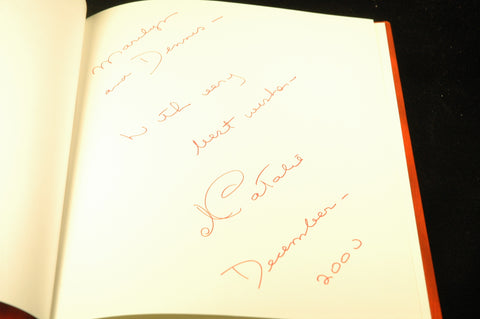 Marilyn
and Dennis –
With very
best wishes –
Natalie
December –
2000